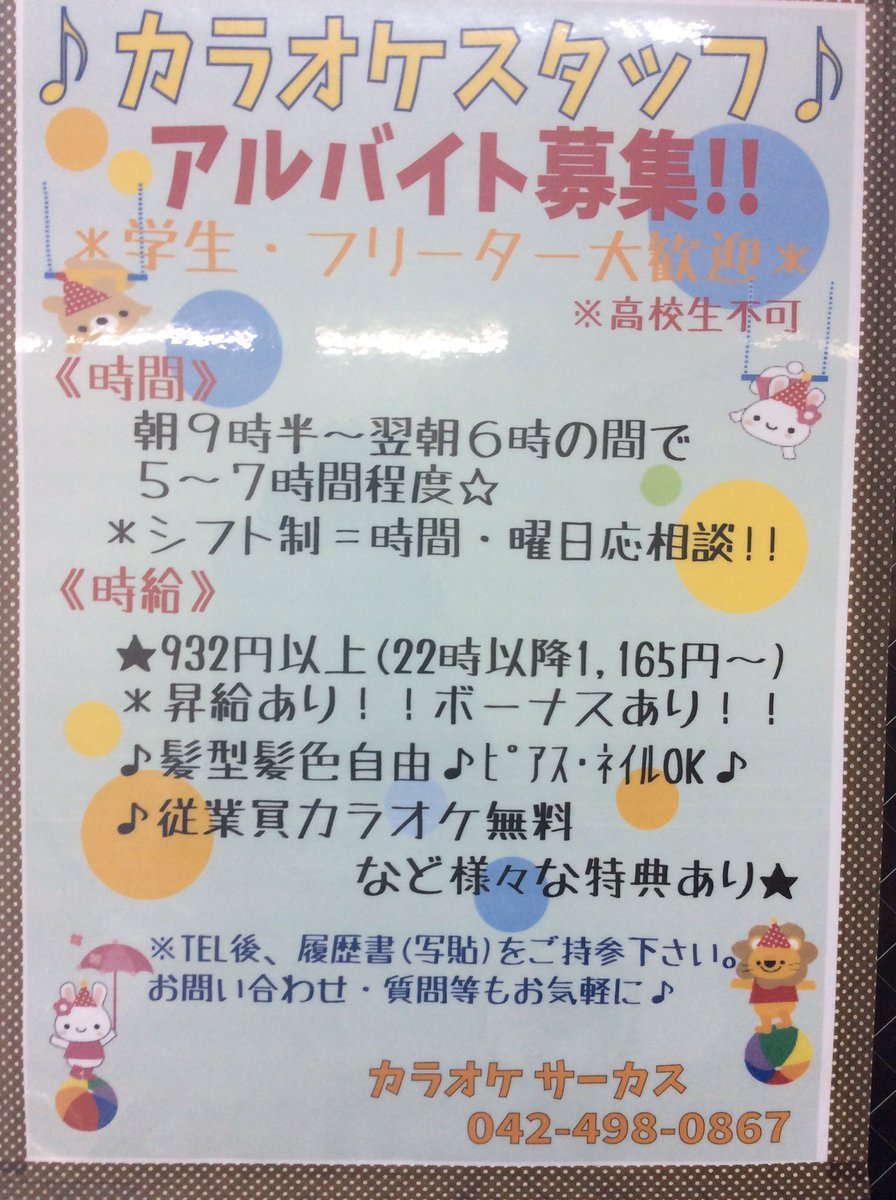 ♪カラオケスタッフ♪
アルバイト募集!!
＊学生・フリーター大歓迎＊
※高校生不可
《時間》
朝９時半～翌朝６時の間で
５～７時間程度☆
＊シフト制＝時間・曜日応相談!!
《時給》
★932円以上(22時以降1,165円～)
＊昇給あり！！ボーナスあり！！
♪髪型髪色自由♪ﾋﾟｱｽ･ﾈｲﾙOK♪
♪従業員カラオケ無料
など様々な特典あり★
※TEL後、履歴書(写貼)をご持参下さい。
お問い合わせ・質問等もお気軽に♪
カラオケ サーカス
042-498-0867